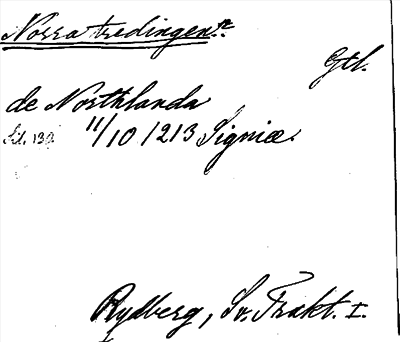 Norra tredingen
Gtl.
de Northlanda
11/10 1213 Signiæ
Rydberg, Sv. Trakt. I.